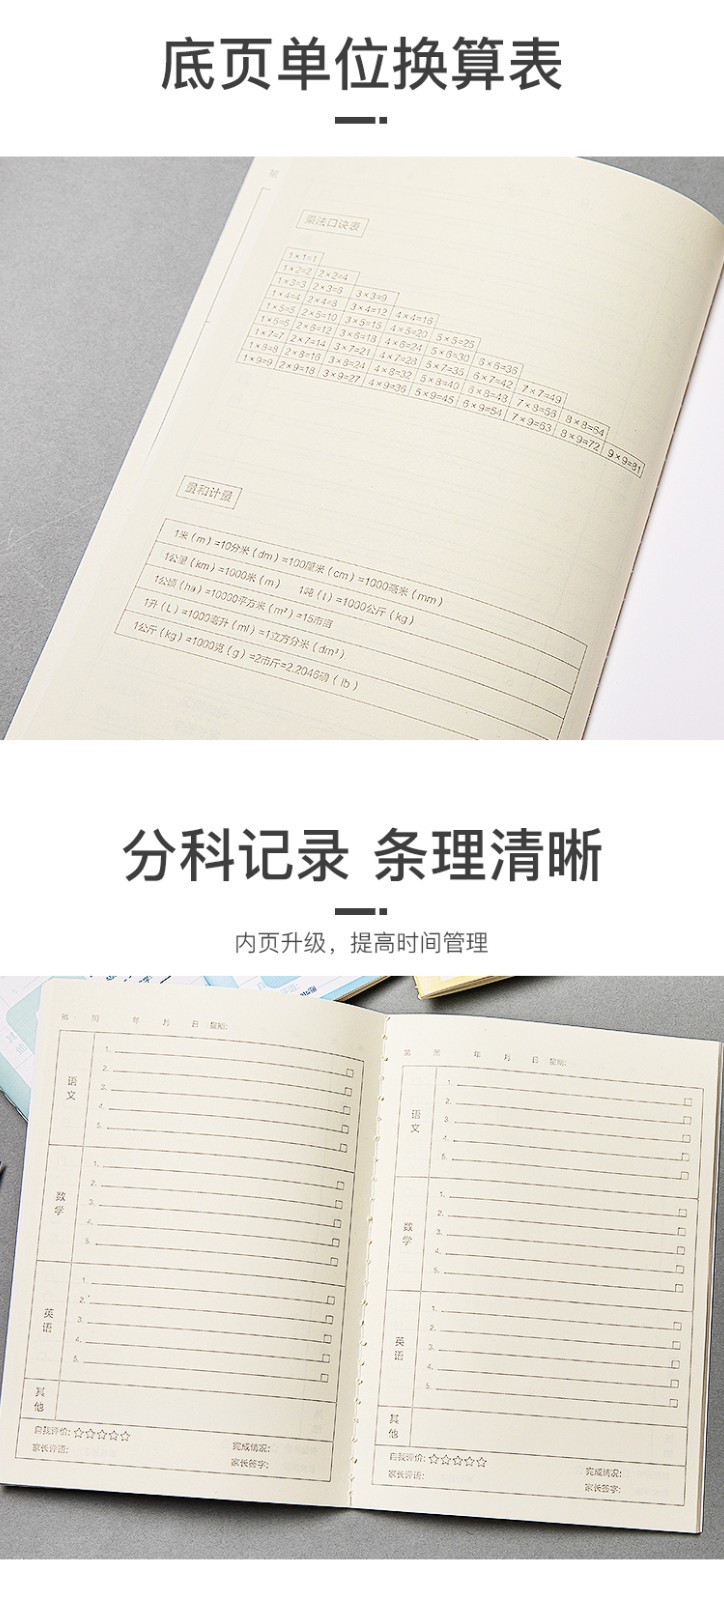 底页单位换算表
乘法口诀表
1×1=1
1×2=2 2×2=4
1×3=3 2×3=6 3×3=9
1×4=4 2×4=8 3×4=12 4×4=16
1×5=5 2×5=10 3×5=15 4×5=20 5×5=25
1×6=6 2×6=12 3×6=18 4×6=24 5×6=30 6×6=36
1×7=7 2×7=14 3×7=21 4×7=28 5×7=35 6×7=42 7×7=49
1×8=8 2×8=16 3×8=24 4×8=32 5×8=40 6×8=48 7×8=56 8×8=64
1×9=9 2×9=18 3×9=27 4×9=36 5×9=45 6×9=54 7×9=63 8×9=72 9×9=81
量和计量
1米(m)=10分米(dm)=100厘米(cm)=1000毫米(mm)
1公里(km)=1000米(m) 1吨(t)=1000公斤(kg)
1公顷(ha)=10000平方米(m²)=15市亩
1升(L)=1000毫升(ml)=1立方分米(dm³)
1公斤(kg)=1000克(g)=2市斤=2.2046磅(lb)
分科记录 条理清晰
内页升级，提高时间管理
第 周 年 月 日 星期:
语文
1.
2.
3.
4.
5.
数学
1.
2.
3.
4.
5.
英语
1.
2.
3.
4.
5.
其他
自我评价:☆☆☆☆☆ 完成情况:
家长评语: 家长签字:
第 周 年 月 日 星期:
语文
1.
2.
3.
4.
5.
数学
1.
2.
3.
4.
5.
英语
1.
2.
3.
4.
5.
其他
自我评价:☆☆☆☆☆ 完成情况:
家长评语: 家长签字: